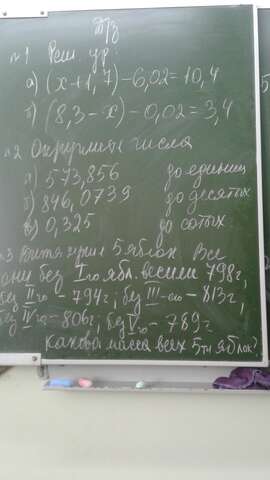 Д/з
№1 Реш. ур.
а) (x+1,7)-6,02=10,4
б) (8,3-x)-0,02=3,4
№2 Округлите числа
а) 573,856 до единиц
б) 846,0739 до десятых
в) 0,325 до сотых
№3 Витя купил 5 яблок. Все
они без I го ябл. весили 798г,
без II го - 794г; без III-его - 813г,
без IV го - 806г; без V го - 789г
Какова масса всех 5ти яблок?